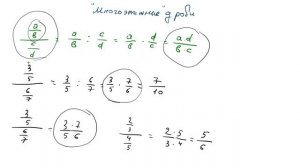 "Многоэтажные" дроби
(a/b)/(c/d) = a/b : c/d = a/b · d/c = ad/(b·c)
(3/5)/(6/7) = 3/5 : 6/7 = 3/5 · 7/6 = 7/10
(3/5)/(6/7) = (3·7)/(5·6)    (2/3)/(4/5) = (2·5)/(3·4) = 5/6